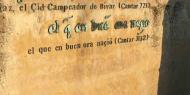 az, el Çid Campeador de Bivar (Cantar 721)
el q̃ en buẽ ora naçio
el que en buen ora naçió (Cantar 202)